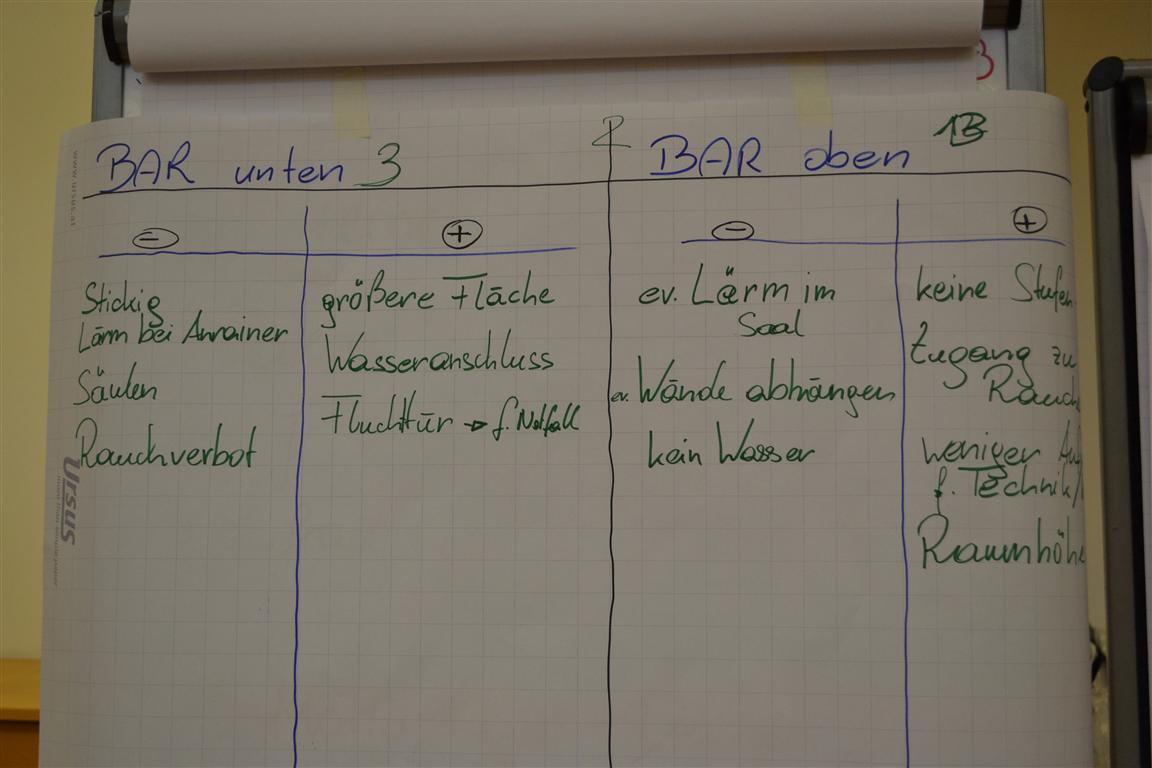 BAR unten 3
BAR oben 13
−
+
−
+
Stickig
Lärm bei Anrainer
Säulen
Rauchverbot
größere Fläche
Wasseranschluss
Fluchttür → f. Notfall
ev. Lärm im
Saal
ev. Wände abhängen
kein Wasser
keine Stufen
Zugang zu
weniger
f. Technik/
Raumhöhe
Ursus
www.ursus.at
3